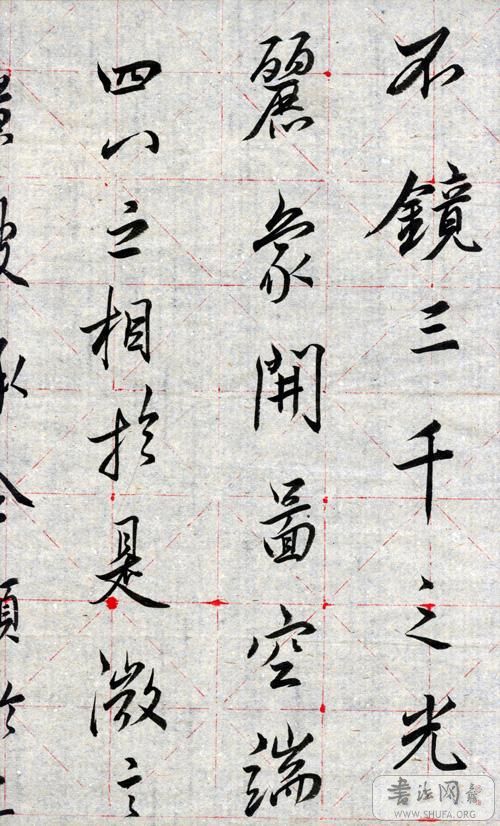 不鏡三千之光
麗象開啚空端
四八之相於是微言
書法网
WWW.SHUFA.ORG